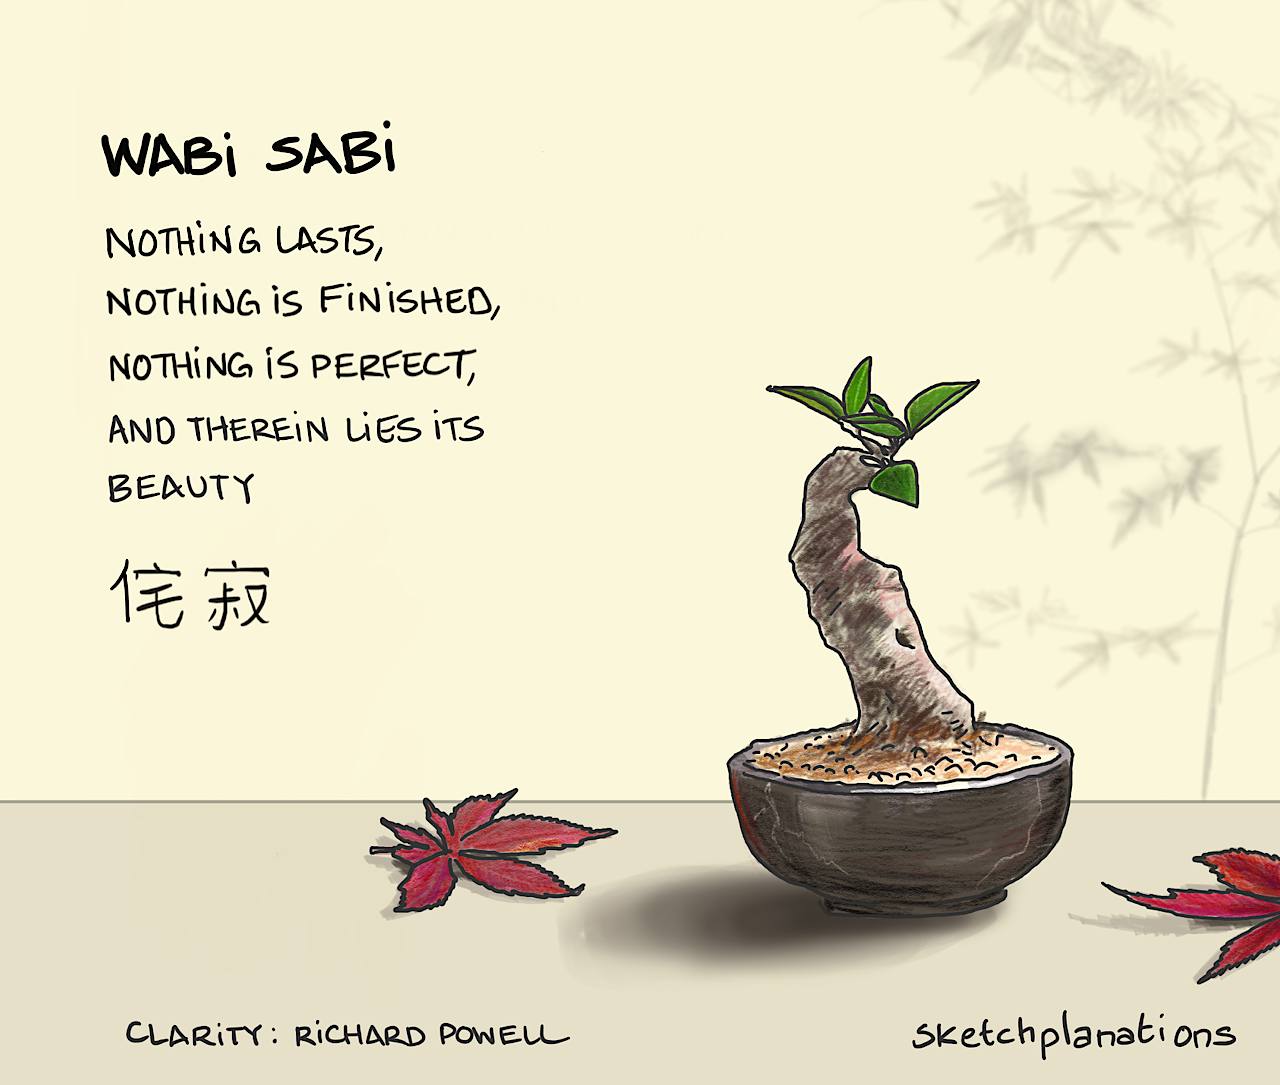 WABi SABi
NOTHiNG LASTS,
NOTHiNG iS FiNiSHED,
NOTHiNG iS PERFECT,
AND THEREiN LiES iTS
BEAUTY
侘寂
CLARiTY: RiCHARD POWELL
sketchplanations